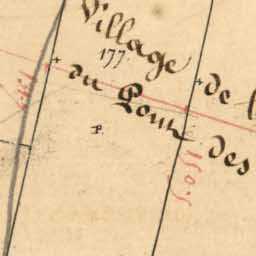 Village
177
du Pont
de
des
P.
150.5